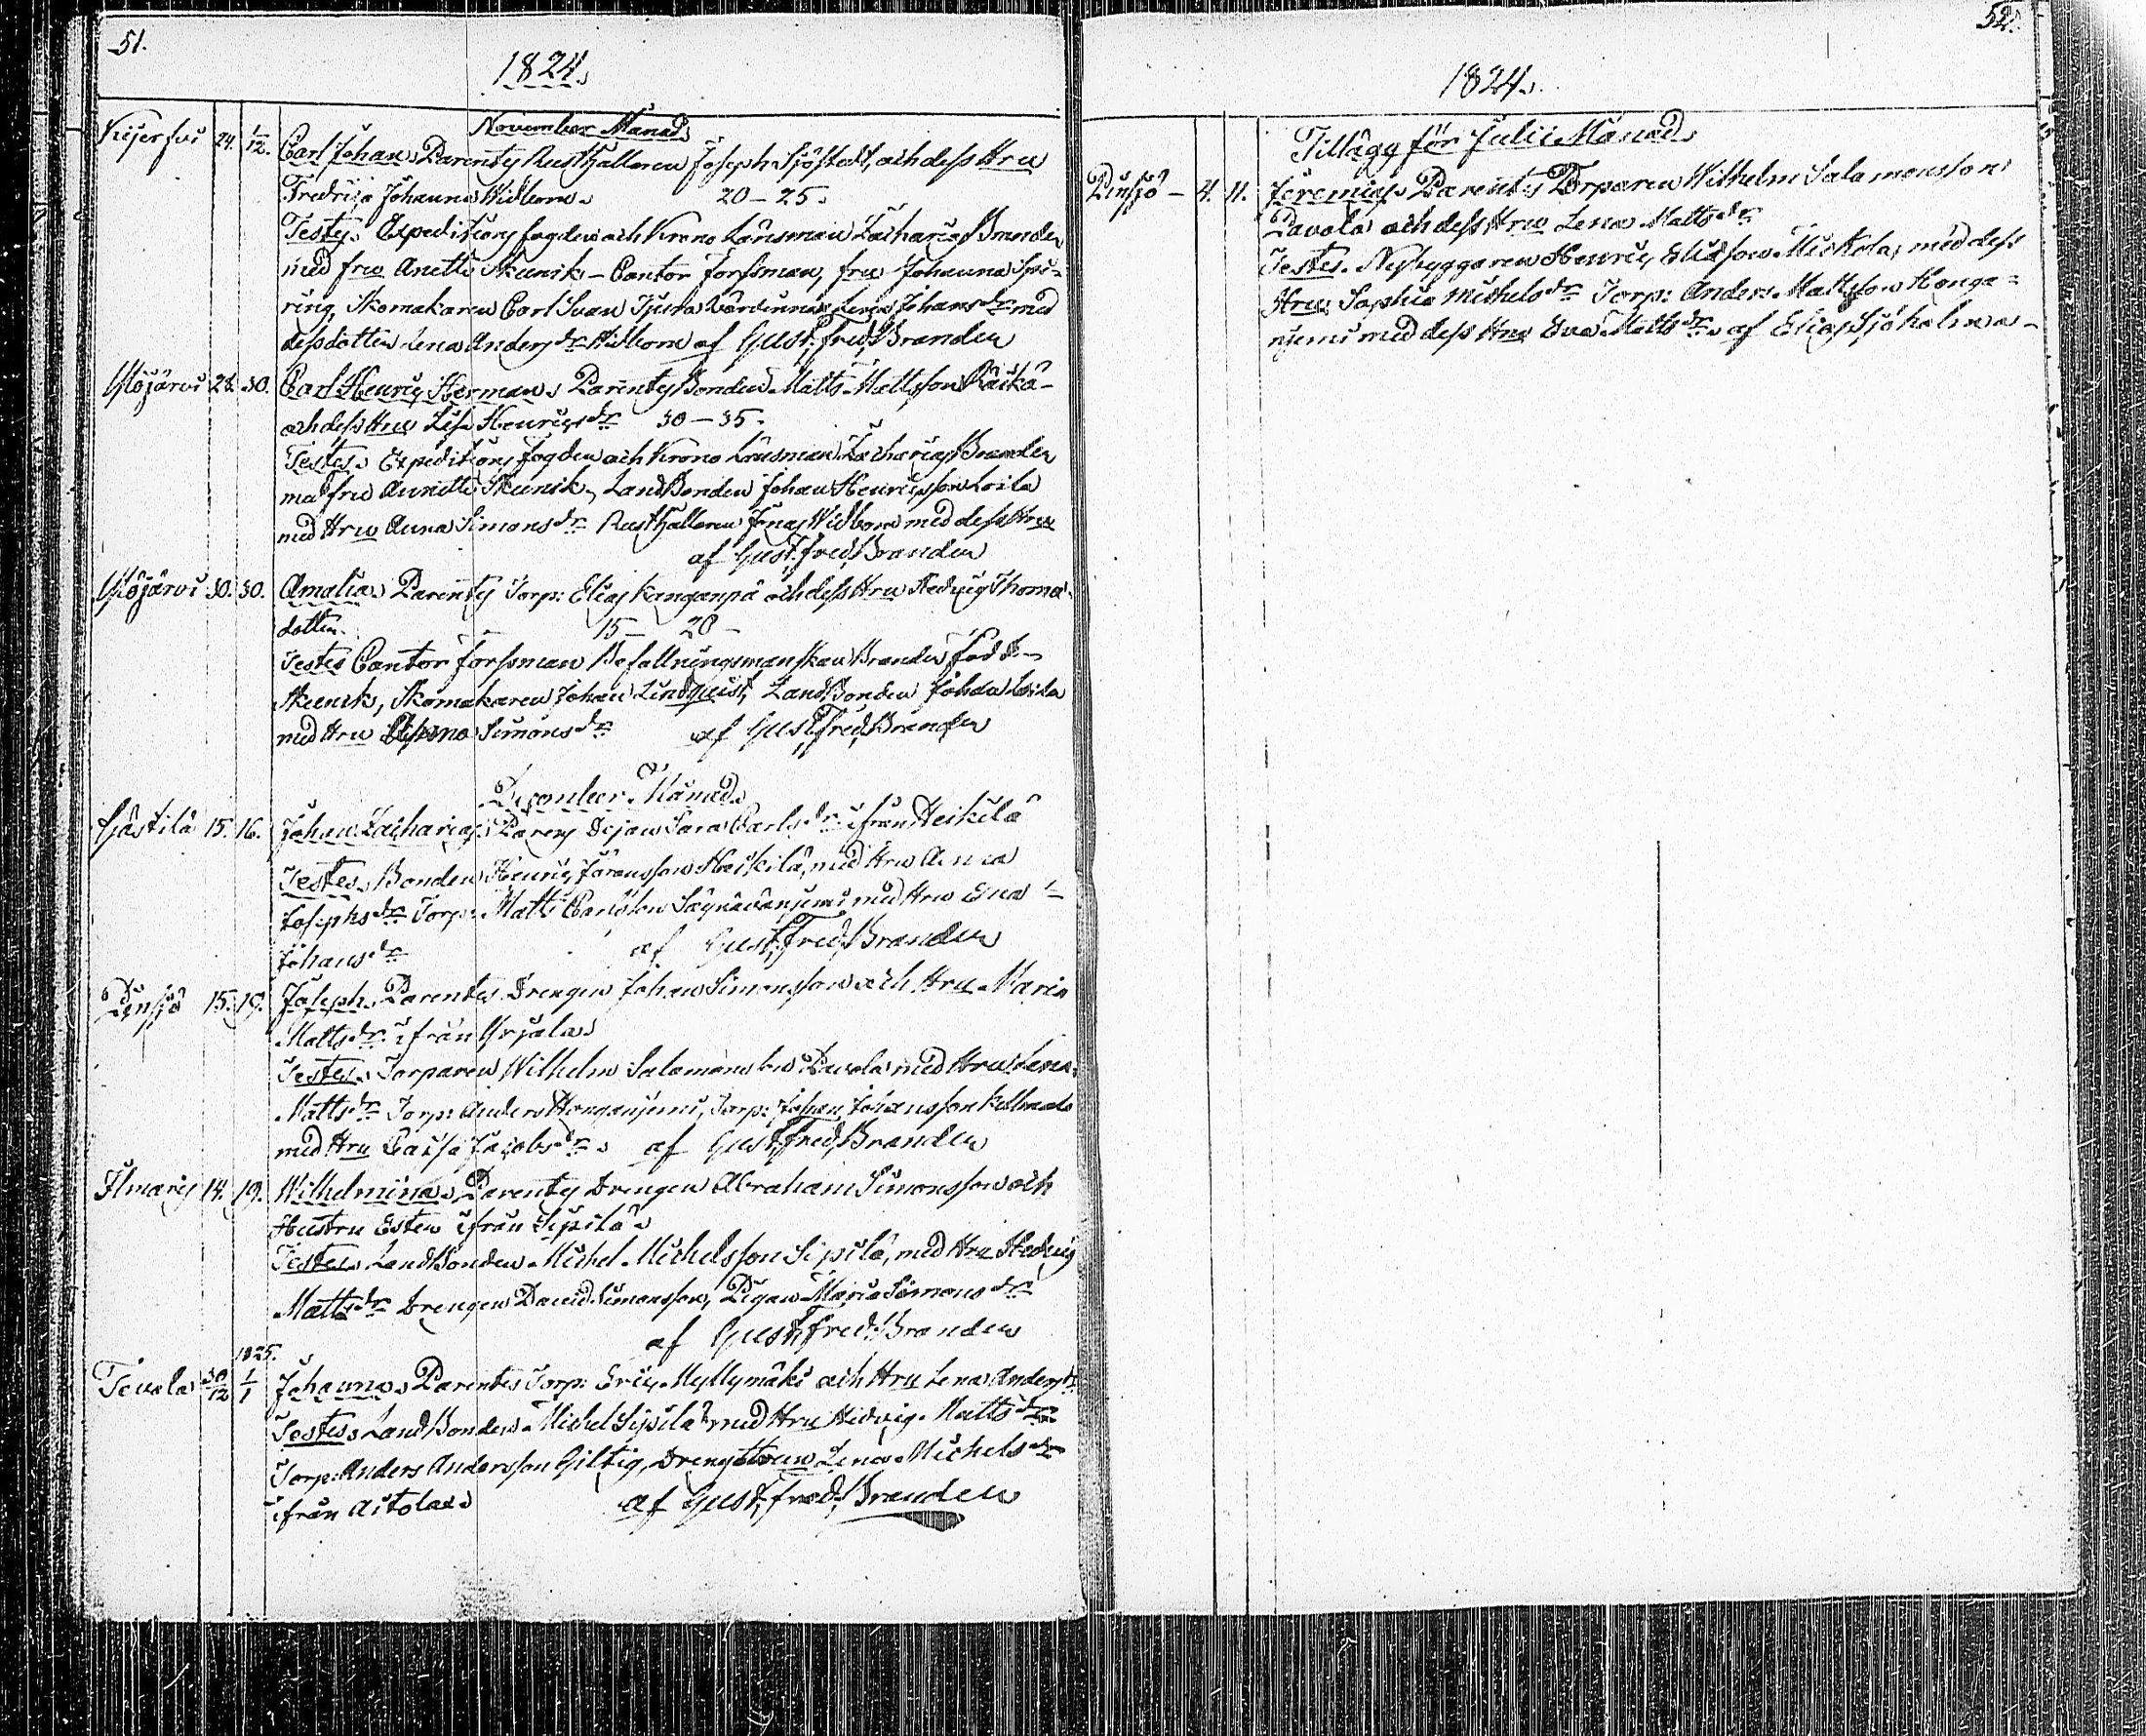 51.
1824.
November Månad.
Kijerfvi 24. 1/12. Carl Johan. Parentes Rusthållaren Joseph Sjöstedt, och dess Hru
Fredrica Johanna Widbom. 20-25.
Testes. Expeditions fogden och Krono Länsman Zacharias Branden
med fru Anette Skeunik - Cantor Forssman, fru Johanna Spi=
ring, Skomakaren Carl Ivan Johans dr. med
dess dotter Lena Anders dr. Widbom af Gust. Fred. Branden
Ylöjärvi 24. 30. Carl Henric Herman. Parentes Bonden Matts Mattsson Räikä
och dess Hru Lisa Henrics dr. 30-35.
Testes. Expeditions fogden och Krono Länsman Zacharias Branden
med fru Annette Skeunik, Landbonden Johan Henricsson Loila
med Hru Anna Simons dr. Rusthållaren Jonas Widbom med dess Hru
af Gust. fred. Branden
Ylöjärvi 30. 30. Amalia. Parentes Torp: Elias Kangaspä och dess Hru Hedvig Thomæ
dotter. 15- 20-
Testes Cantor Forssman Befallningsmanskan Branden född
Skeunik, Skomakaren Johan Lindqvist, Landbonden Johan Loila
med Hru Anna Simons dr. af Gust. fred. Branden
December Månad.
15. 16. Johan Zacharias. Parens Pigan Sara Carls dr. ifrån Heikilä
Testes. Bonden Henric Göransson Heikilä, med Hru Anna
Josephs dr. Torp: Matts Carlsson med Hru Eva
Johans dr. af Gust. Fred. Branden
Pinsjö 15. 19. Joseph. Parentes Drengen Johan Simonsson och Hru Maria
Matts dr. ifrån Yrjola.
Testes. Torparen Wilhelm Salomonsson Pavola med Hru Lena
Matts dr. Torp: Anders Honganjemi, Torp: Johan Johansson
med Hru Caisa Jacobs dr. af Gust. Fred. Branden
Ilmaris 14. 19. Wilhelmina. Parentes Drengen Abraham Simonsson och
Hustru Ester ifrån Sipilä.
Testes. Landbonden Michel Michelsson Sipilä, med Hru Hedvig
Matts dr. Drengen David Simonsson, Pigan Maria Simons dr.
af Gust. Fred. Branden
1825.
Tevala 30/12 1/1 Johanna. Parentes Torp: Eric Myllymäki och Hru Lena Anders dr.
Testes. Landbonden Michel Sipilä med Hru Hedvig Matts dr.
Torp: Anders Andersson Giltig, Drengstrun Lena Michels dr.
ifrån Aitola. af Gust. fred. Branden
52.
1824.
Tillägg för Julii Månad.
Pinsjö - 4. 11. Jeremias. Parentes Torparen Wilhelm Salomonsson
Pavola och dess Hru Lena Matts dr.
Testes. Nybyggaren Henric Eliasson Mickola, med dess
Hru Sophia Michels dr. Torp: Anders Mattsson Honga=
njemi med dess Hru Eva Matts dr. af Elias Sjöholm